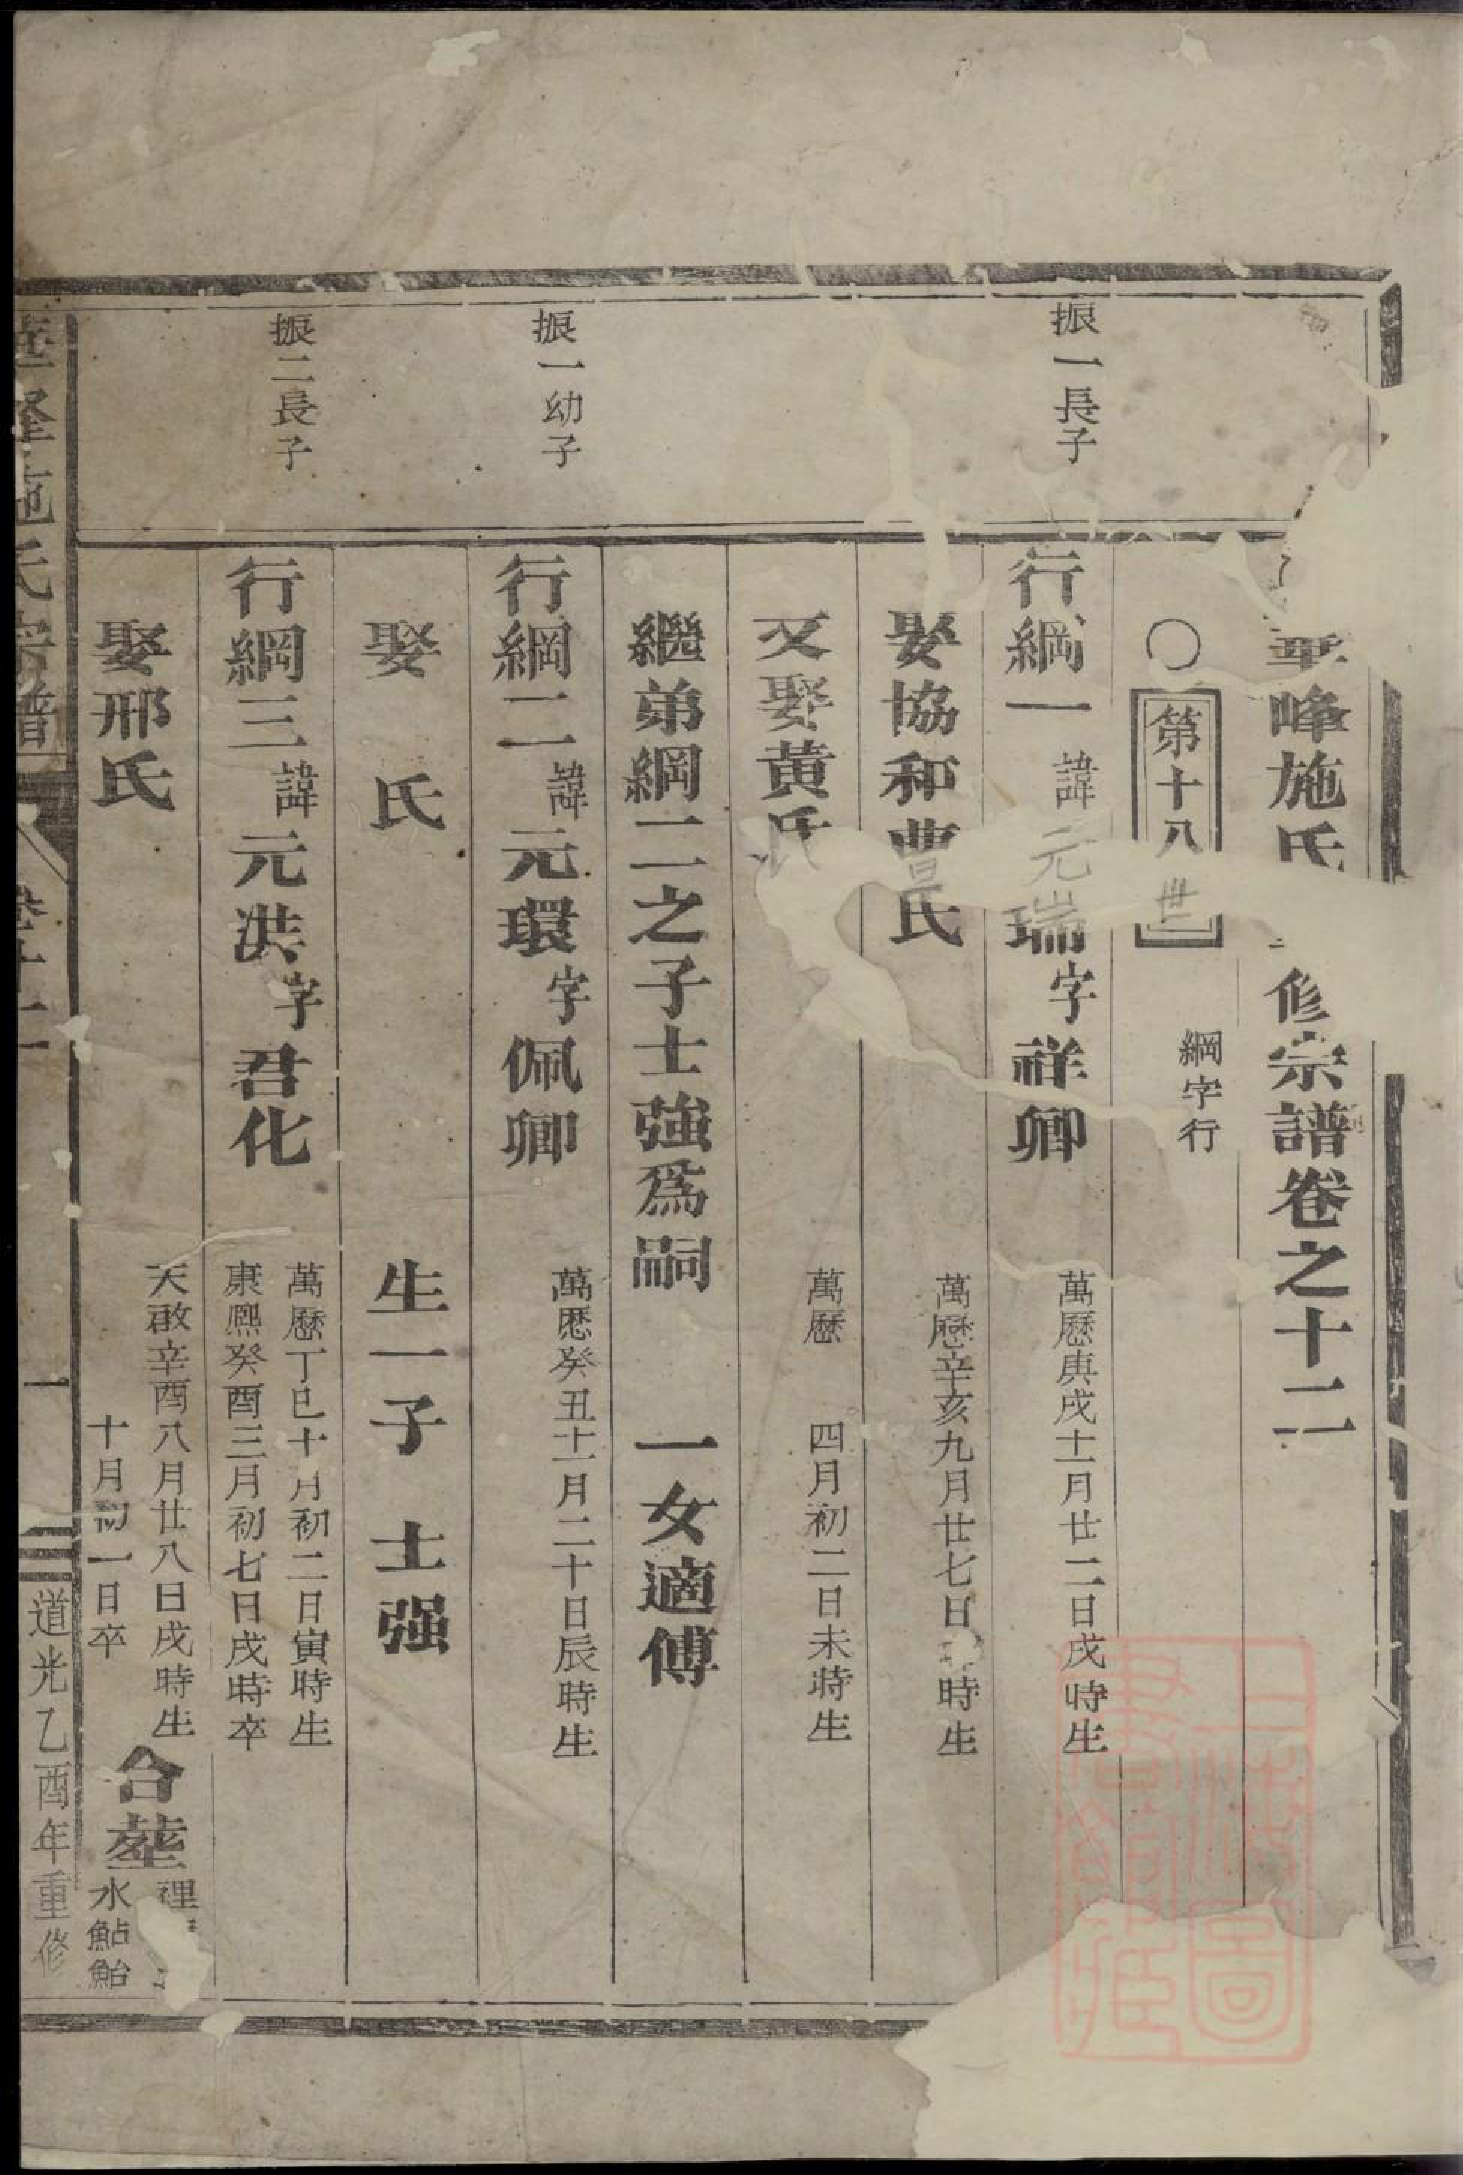 華峰施氏修宗譜卷之十二
〇第十八世 綱字行
振一長子
行綱一諱元瑞字祥卿 萬歷庚戌十一月廿二日戌時生
娶協和曹氏 萬歷辛亥九月廿七日時生
又娶黃氏 萬歷 四月初二日未時生
繼弟綱二之子士強為嗣 一女適傅
振一幼子
行綱二諱元環字佩卿 萬歷癸丑十一月二十日辰時生
娶 氏 生一子 士强
振二長子
行綱三諱元洪字君化 萬歷丁巳十月初二日寅時生
康熙癸酉三月初七日戌時卒
娶邢氏 天啟辛酉八月廿八日戌時生
十月初一日卒
合塟
裡
水鮎鮐
華峰施氏宗譜 卷十二 一 道光乙酉年重修
上海圖書館藏